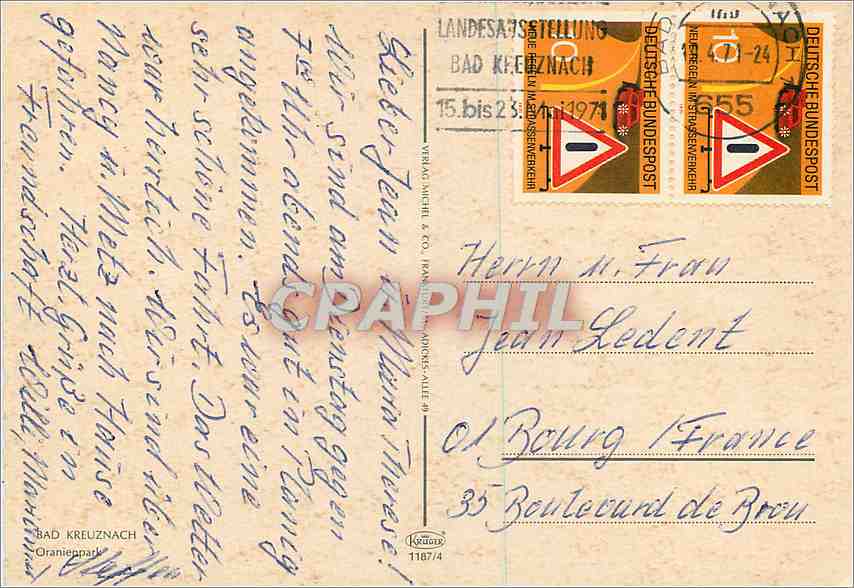 Lieber Jean u. Maria Therese!
Wir sind am Dienstag gegen
7 Uhr abends gut in Planig
angekommen. Es war eine
sehr schöne Fahrt. Das Wetter
war herrlich. Wir sind über
Nancy u. Metz nach Hause
gefahren. Herzl. Grüße in
Freundschaft Willi, Marianne
BAD KREUZNACH
Oranienpark
VERLAG MICHEL & CO., FRANKFURT/M., ADICKES-ALLEE 49
KRÜGER
1187/4
LANDESAUSSTELLUNG
BAD KREUZNACH
15. bis 23. Mai 1971
BAD
4.71-24
655
DEUTSCHE BUNDESPOST
NEUE REGELN IM STRASSENVERKEHR
10
DEUTSCHE BUNDESPOST
NEUE REGELN IM STRASSENVERKEHR
10
Herrn u. Frau
Jean Ledent
01 Bourg / France
35 Boulevard de Brou
CPAPHIL